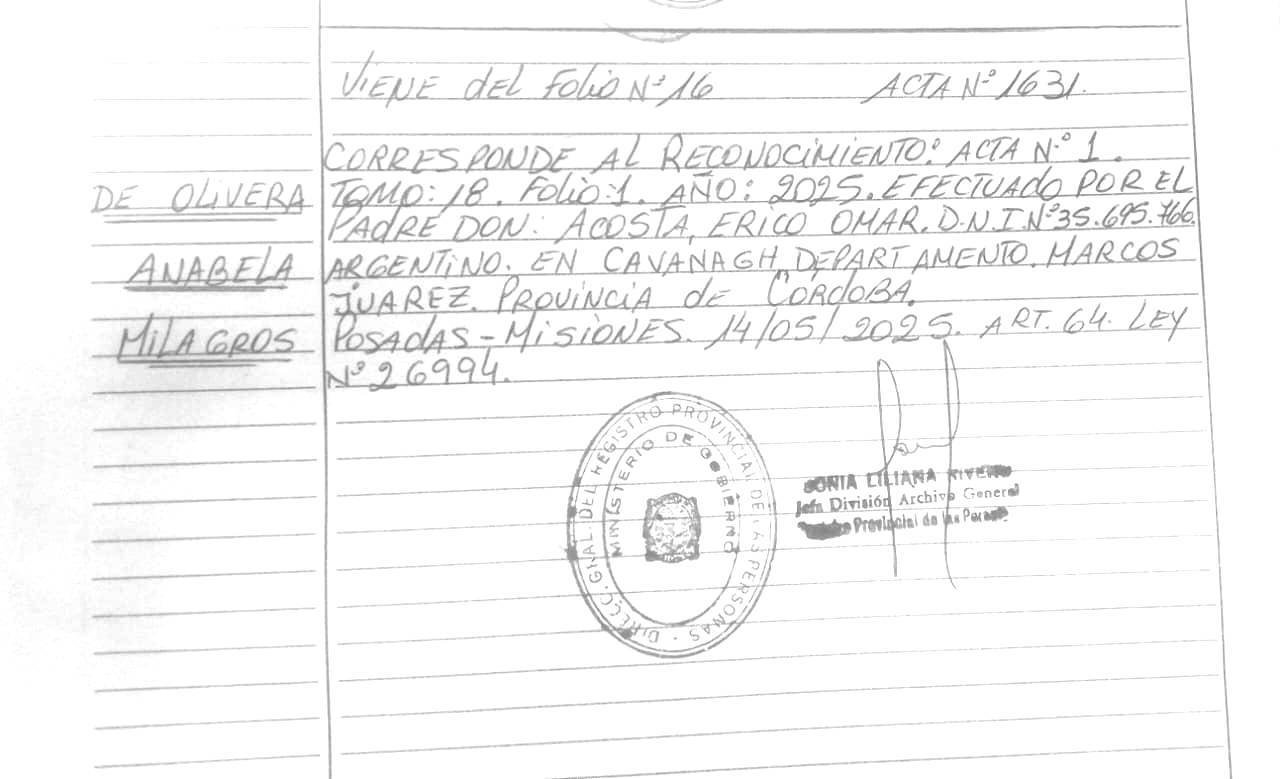 VIENE del Folio Nº 16 ACTA Nº 1631.
CORRESPONDE AL RECONOCIMIENTO: ACTA N.º 1.
DE OLIVERA
TOMO: 18. Folio: 1. AÑO: 2025. EFECTUADO POR EL
PADRE DON: ACOSTA, ERICO OMAR. D.N.I.Nº35.695.766.
ANABELA
ARGENTINO. EN CAVANAGH DEPARTAMENTO. MARCOS
JUAREZ. PROVINCIA de CORDOBA.
MILAGROS
POSADAS - MISIONES. 14/05/2025. ART. 64. LEY
Nº 26994.
DIRECC. GRAL DEL REGISTRO PROVINCIAL DE LAS PERSONAS -
MINISTERIO DE GOBIERNO
SONIA LILIANA RIVERO
Jefa División Archivo General
Provincial de las Personas